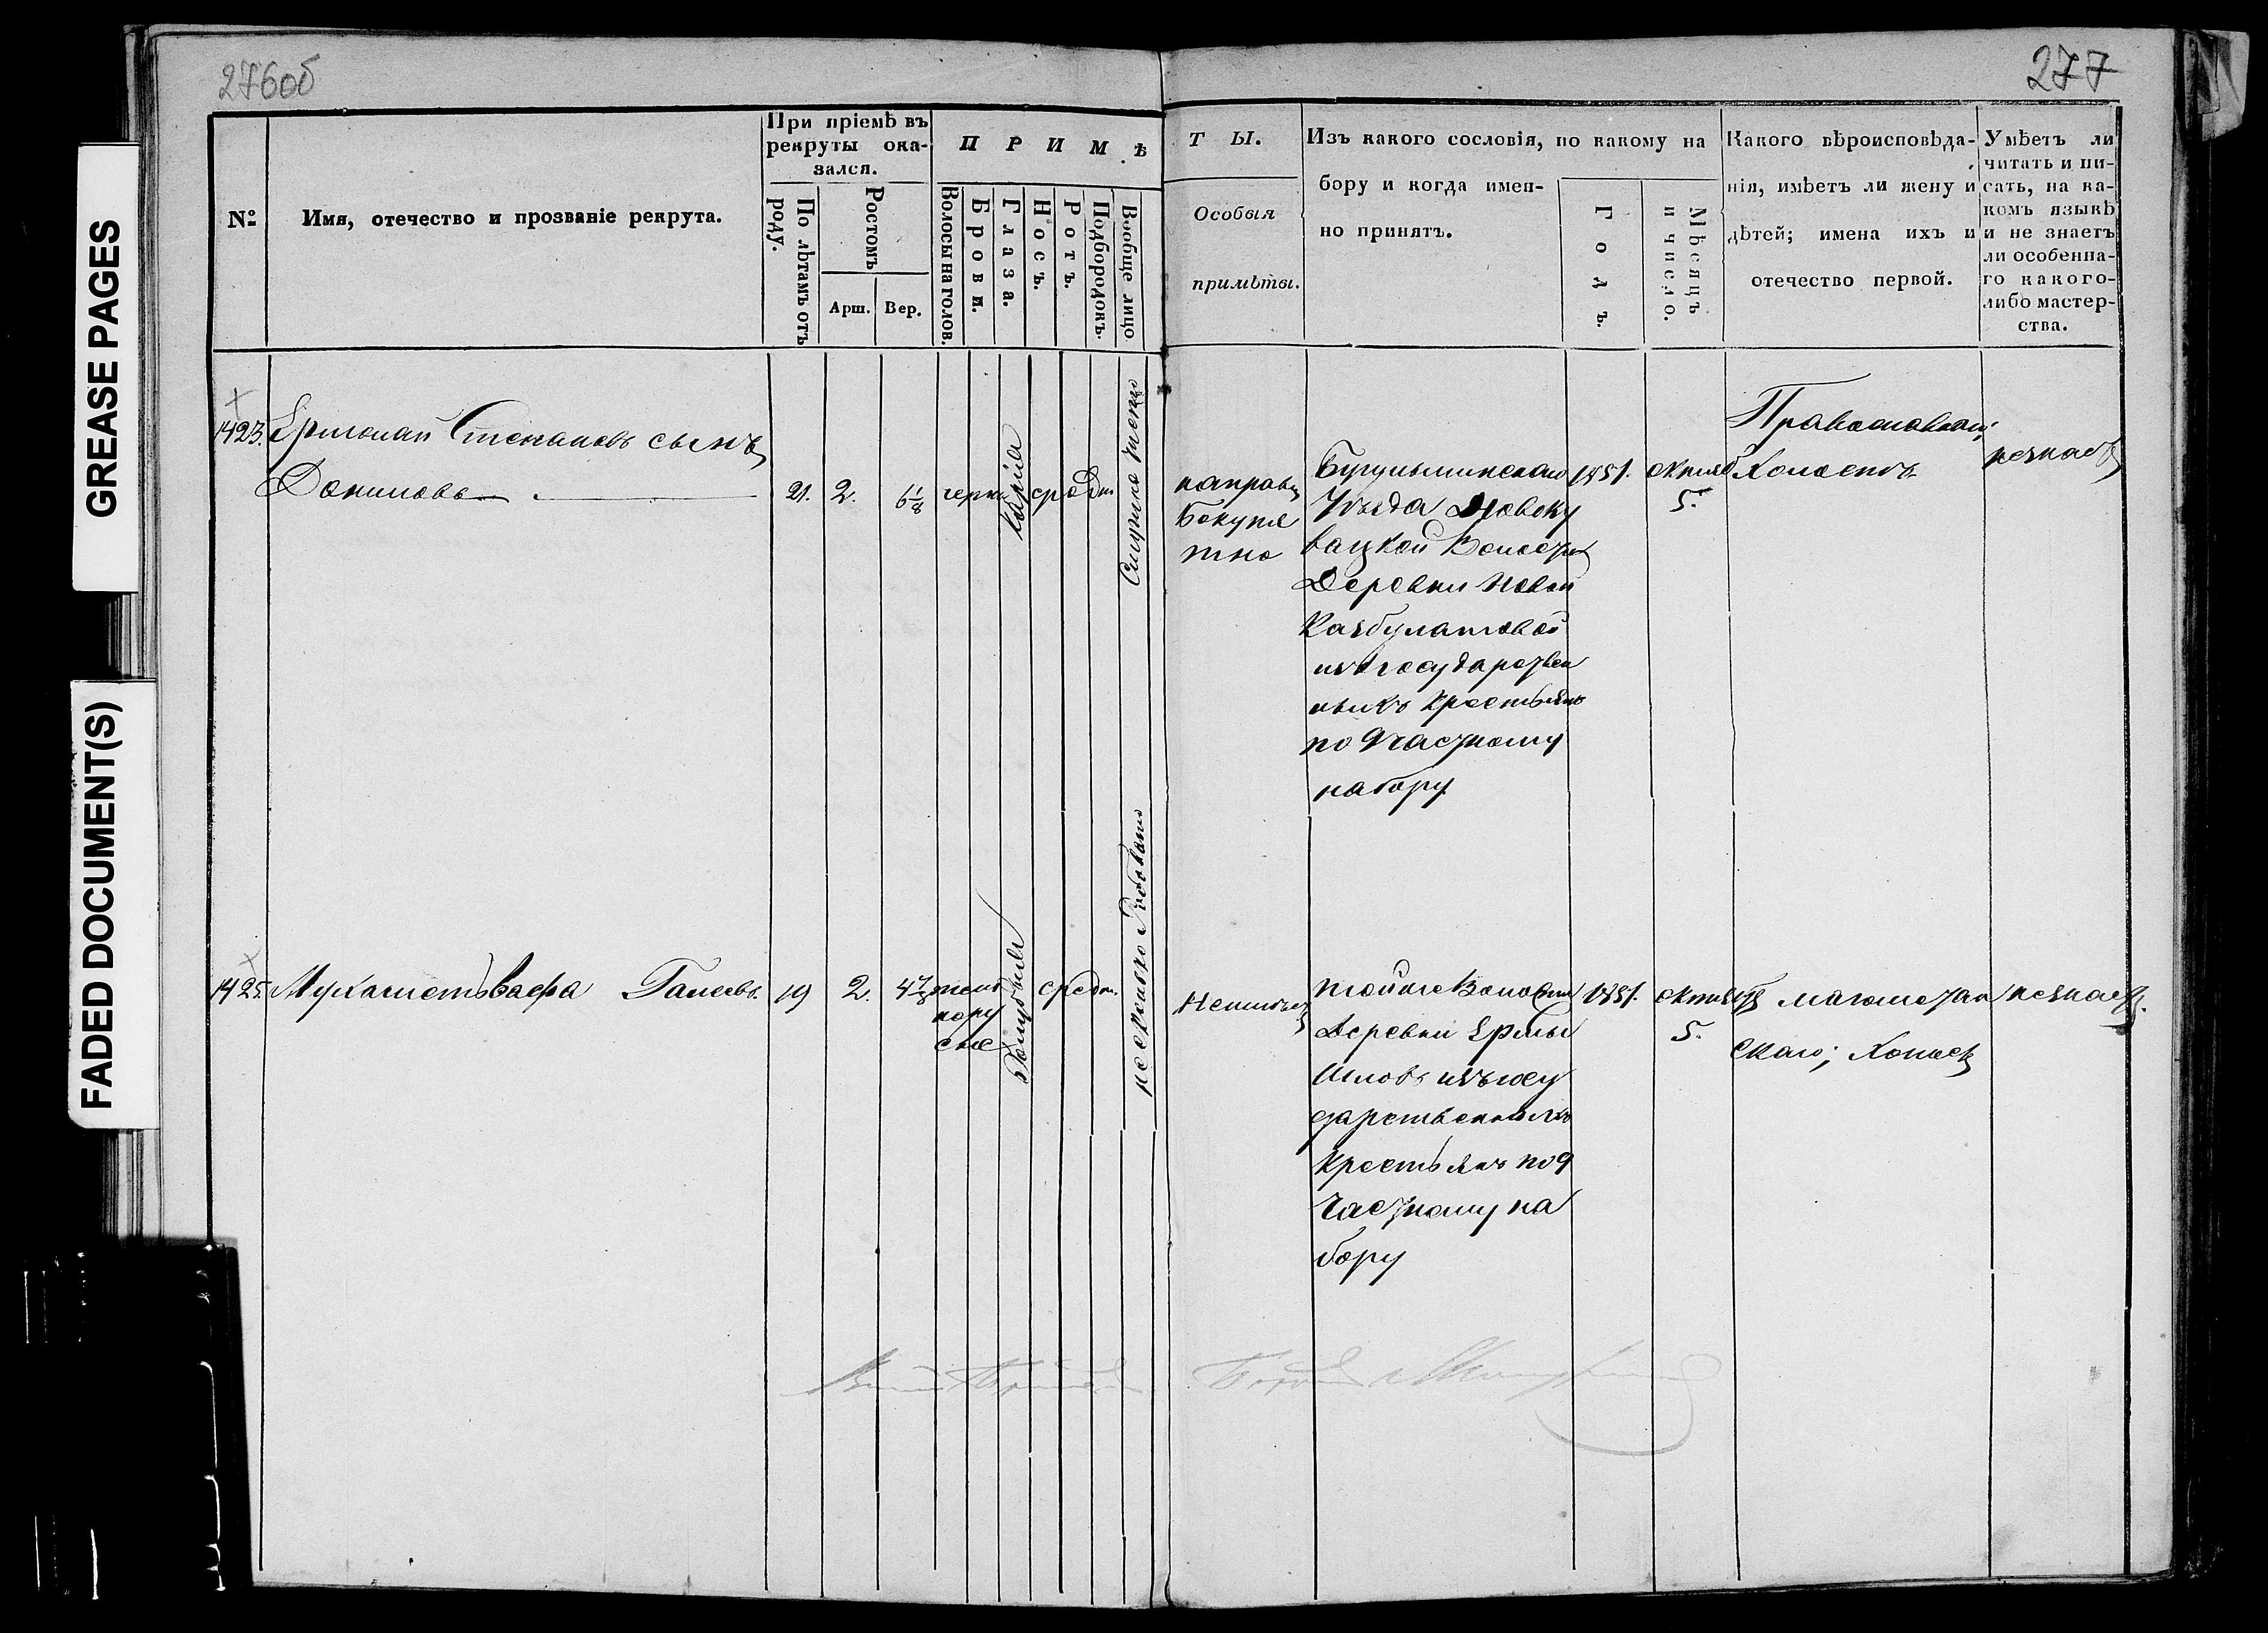 276об
277
GREASE PAGES
FADED DOCUMENT(S)
№
Имя, отечество и прозваніе рекрута.
При пріемѣ въ
рекруты ока-
зался.
По лѣтамъ отъ
роду.
Ростомъ
Арш.
Вер.
П Р И М Ѣ
Волосы на голов.
Брови.
Глаза.
Носъ.
Ротъ.
Подбородокъ.
Вообще лицо
Т Ы.
Особыя
примѣты.
Изъ какого сословія, по какому на
бору и когда имен-
но принятъ.
Годъ.
Мѣсяцъ
и число.
Какого вѣроисповѣда-
нія, имѣетъ ли жену и
дѣтей; имена ихъ и
отечество первой.
Умѣетъ ли
читать и пи-
сать, на ка-
комъ языкѣ
и не знаетъ
ли особенна-
го какого-
либо мастер-
ства.
1423.
Степановъ сынъ
Даниловъ
21.
2.
6 1/8
черн
карія
средн
Бугульминскаго
Уѣзда
Волости
Деревни Новой
Казбулатовой
изъ государствен
ныхъ крестьянъ
по 9 частному
набору
1851.
октяб
5.
Православнаго;
Холостъ
незнаетъ
1425.
Мухаметъ Вафа Галеевъ
19
2.
4 7/8
темно
ру
сые
голубыя
средн.
рябовато
Неимѣетъ
тойже Волости
Деревни
изъ госу
дарственныхъ
крестьянъ по 9
Частному на
бору
1851.
октября
5.
магометан
скаго; Холостъ
незнаетъ.